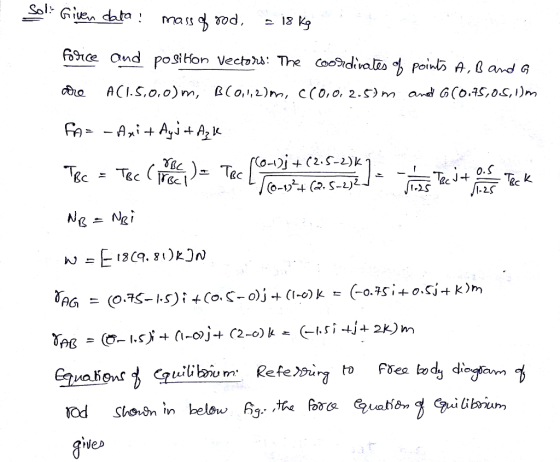 Sol:- Given data: mass of rod, = 18 Kg
Force and position vectors: The coordinates of points A, B and G
are A(1.5,0,0)m, B(0,1,2)m, C(0,0,2.5)m and G(0.75,0.5,1)m
FA = -Axi + Ayj + Azk
TBC = TBC (rBC/|rBC|) = TBC [(0-1)j + (2.5-2)k / √(0-1)²+(2.5-2)²] = -1/√1.25 TBC j + 0.5/√1.25 TBC k
NB = NBi
W = [-18(9.81)k]N
rAG = (0.75-1.5)i + (0.5-0)j + (1-0)k = (-0.75i + 0.5j + k)m
rAB = (0-1.5)i + (1-0)j + (2-0)k = (-1.5i + j + 2k)m
Equations of Equilibrium: Referring to Free body diagram of
rod shown in below fig., the force equation of equilibrium
gives